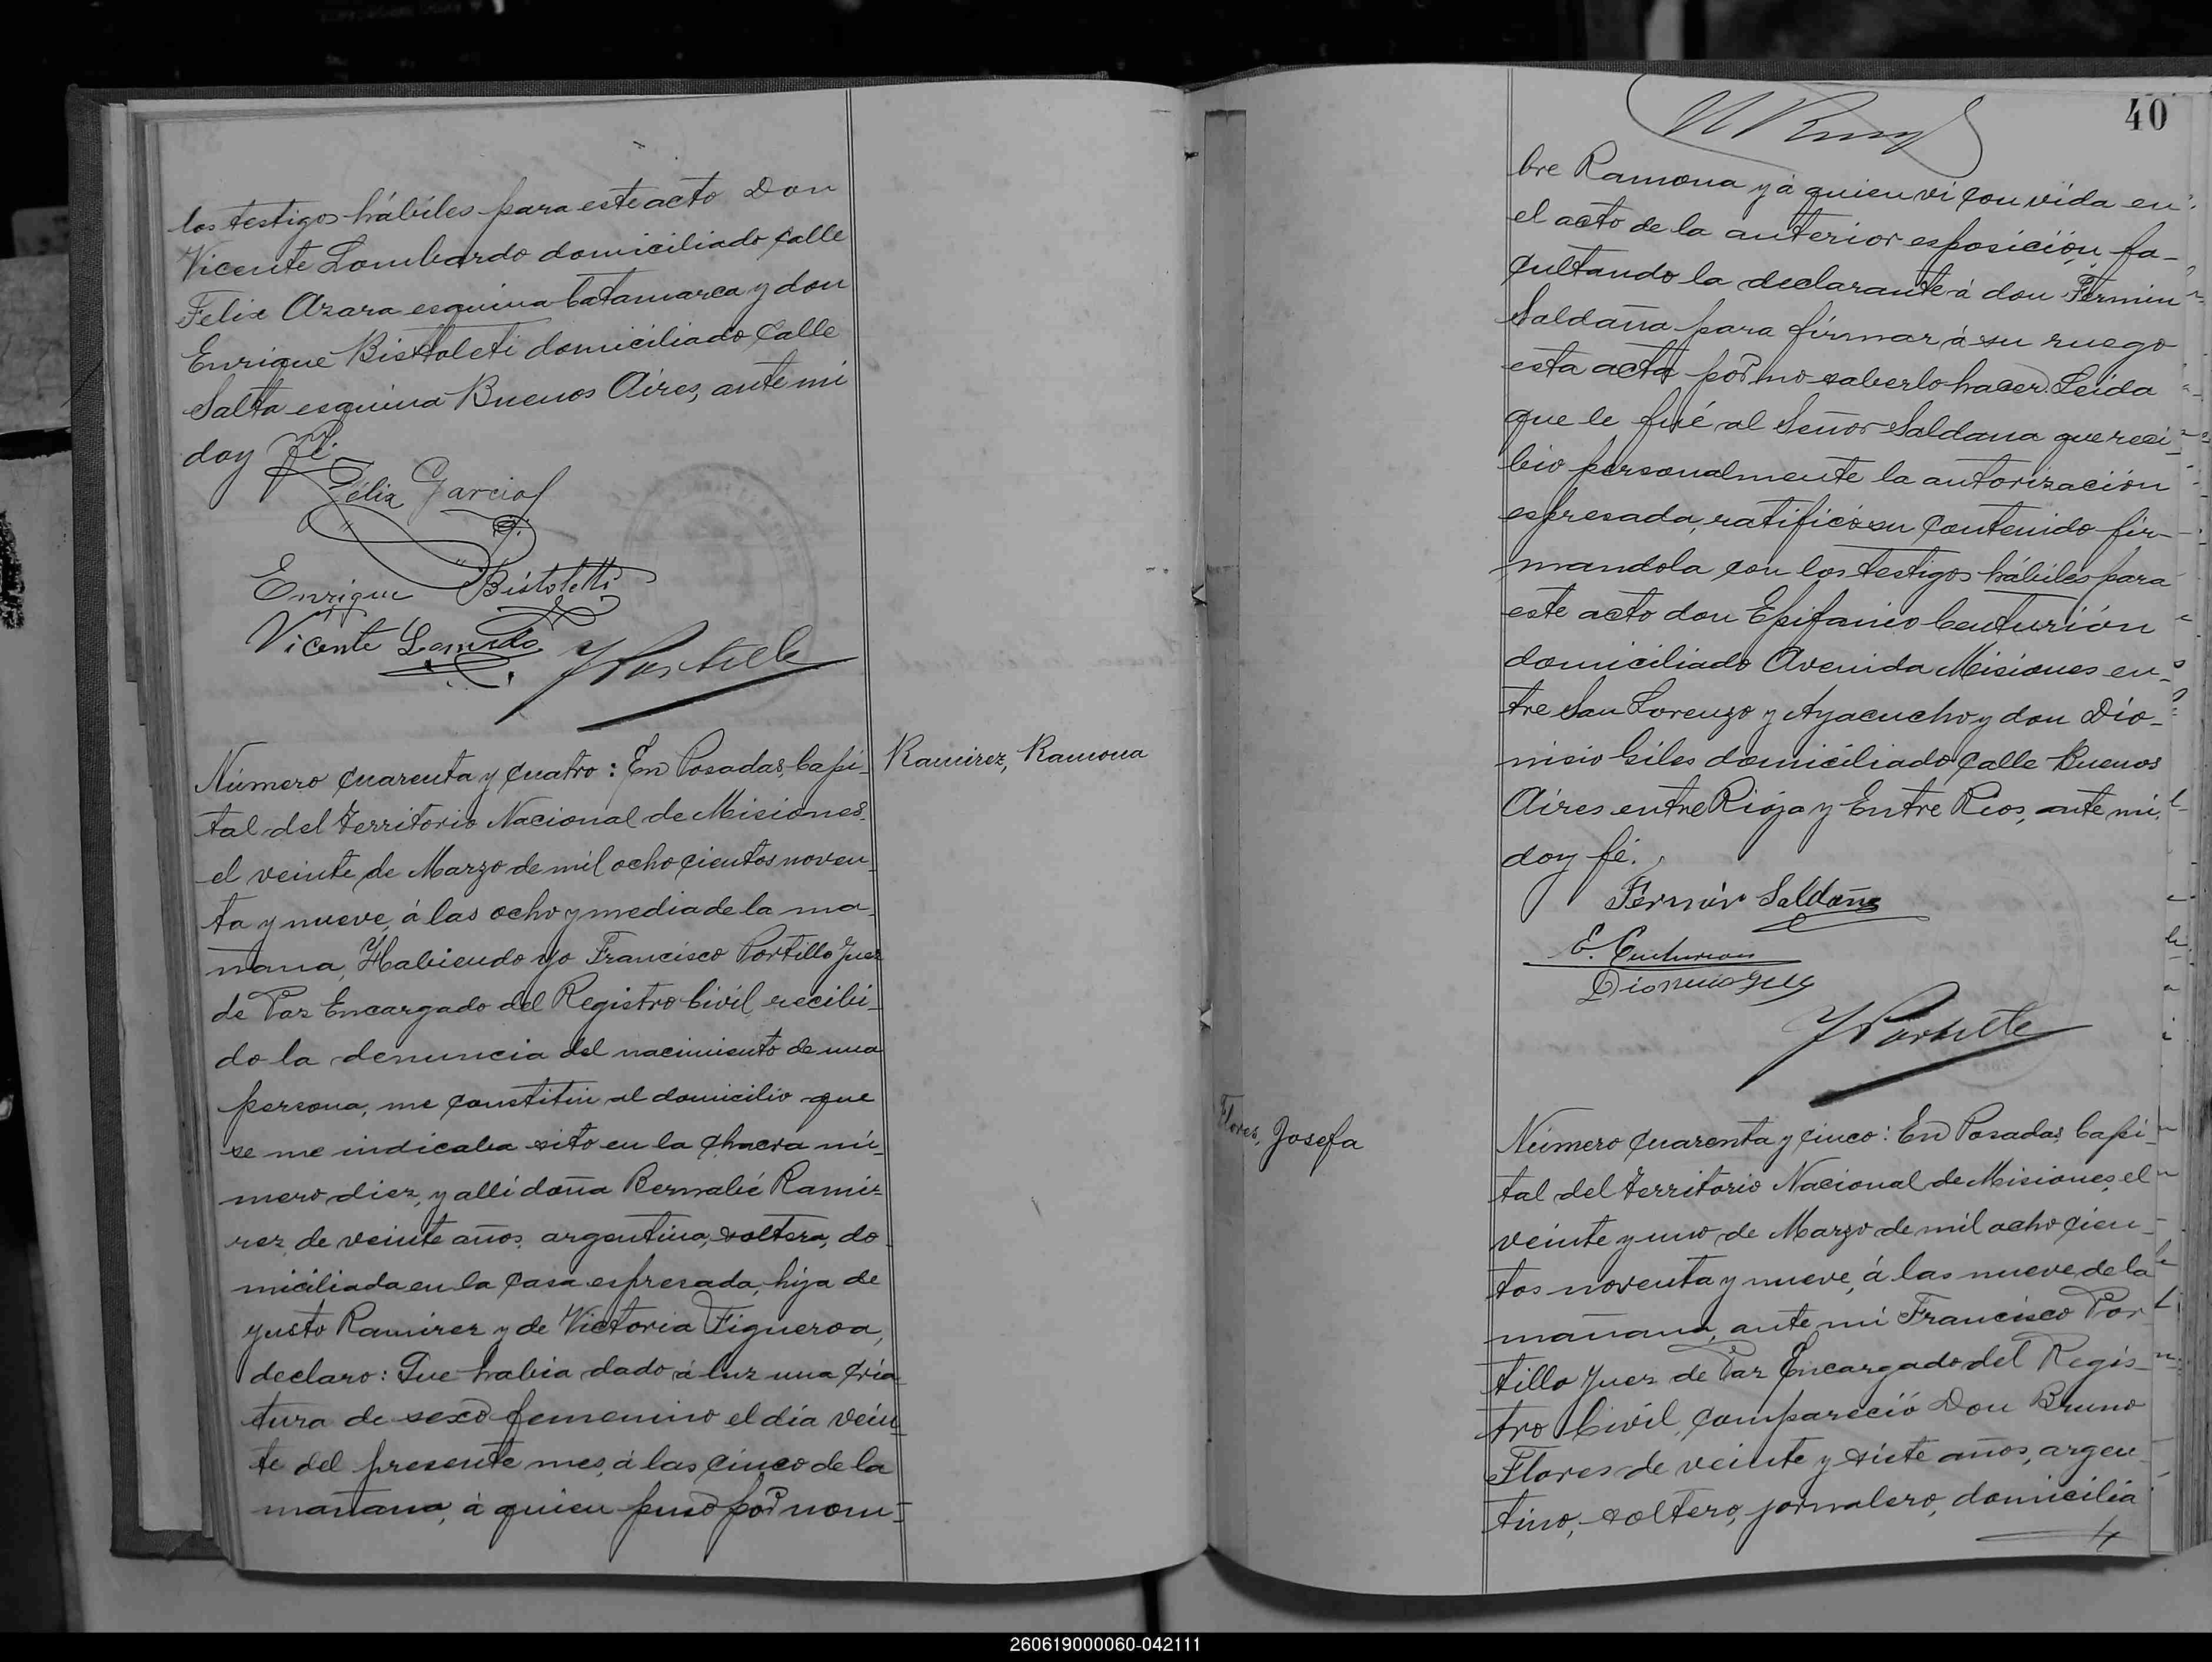 los testigos hábiles para este acto Don
Vicente Lombardo domiciliado Calle
Felix Azara esquina Catamarca y don
Enrique Bistoleti domiciliado Calle
Salta esquina Buenos Aires, ante mi
doy fé.
Félix Garcia
Enrique Bistoletti
Vicente Lomardo
F Portillo
Ramirez, Ramona
Número Cuarenta y Cuatro: En Posadas, Capi-
tal del Territorio Nacional de Misiones,
el veinte de Marzo de mil ocho cientos noven-
ta y nueve, á las ocho y media de la ma-
ñana, Habiendo yo Francisco Portillo Juez
de Paz Encargado del Registro Civil, recibi-
do la denuncia del nacimiento de una
persona, me constituí al domicilio que
se me indicaba sito en la Chacra nú-
mero diez, y allí doña Bernabé Ramir-
rez, de veinte años, argentina, soltera, do-
miciliada en la Casa espresada, hija de
Justo Ramirez y de Victoria Figueroa,
declaro: Que habia dado á luz una Cria
tura de sexo femenino el día vein-
te del presente mes, á las cinco de la
mañana, á quien puso por nom-
40
bre Ramona y á quien vi con vida en
el acto de la anterior esposición, fa-
cultando la declarante á don Fermin
Saldaña para firmar á su ruego
esta acta por no saberlo hacer. Leida
que le fué al Señor Saldana que reci-
bio personalmente la autorización
espresada, ratificó su Contenido fir-
mandola con los testigos hábiles para
este acto don Epifanio Centurión
domiciliado Avenida Misiones en-
tre San Lorenzo y Ayacucho y don Dio-
nisio Giles domiciliado Calle Buenos
Aires entre Rioja y Entre Rios, ante mi,
doy fé.
Fermin Saldaña
E. Centurion
Dionicio Giles
F Portillo
Flores, Josefa
Número Cuarenta y cinco: En Posadas, Capi-
tal del Territorio Nacional de Misiones, el
veinte y uno de Marzo de mil ocho cien-
tos noventa y nueve, á las nueve de la
mañana, ante mi Francisco Por
tillo Juez de Paz Encargado del Regis-
tro Civil, Compareció Don Bruno
Flores de veinte y siete años, argen
tino, soltero, jornalero, domicilia
260619000060-042111